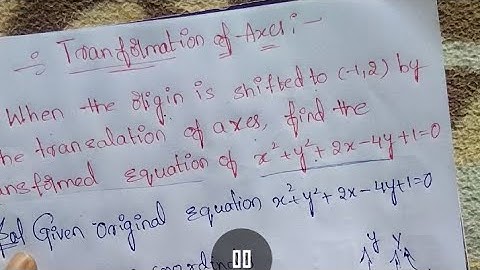 ÷ Tranformation of Axes :-
When the origin is shifted to (-1,2) by
the transalation of axes, find the
ansformed equation of x²+y²+2x-4y+1=0
Sol Given original equation x²+y²+2x-4y+1=0
coordin
y Y